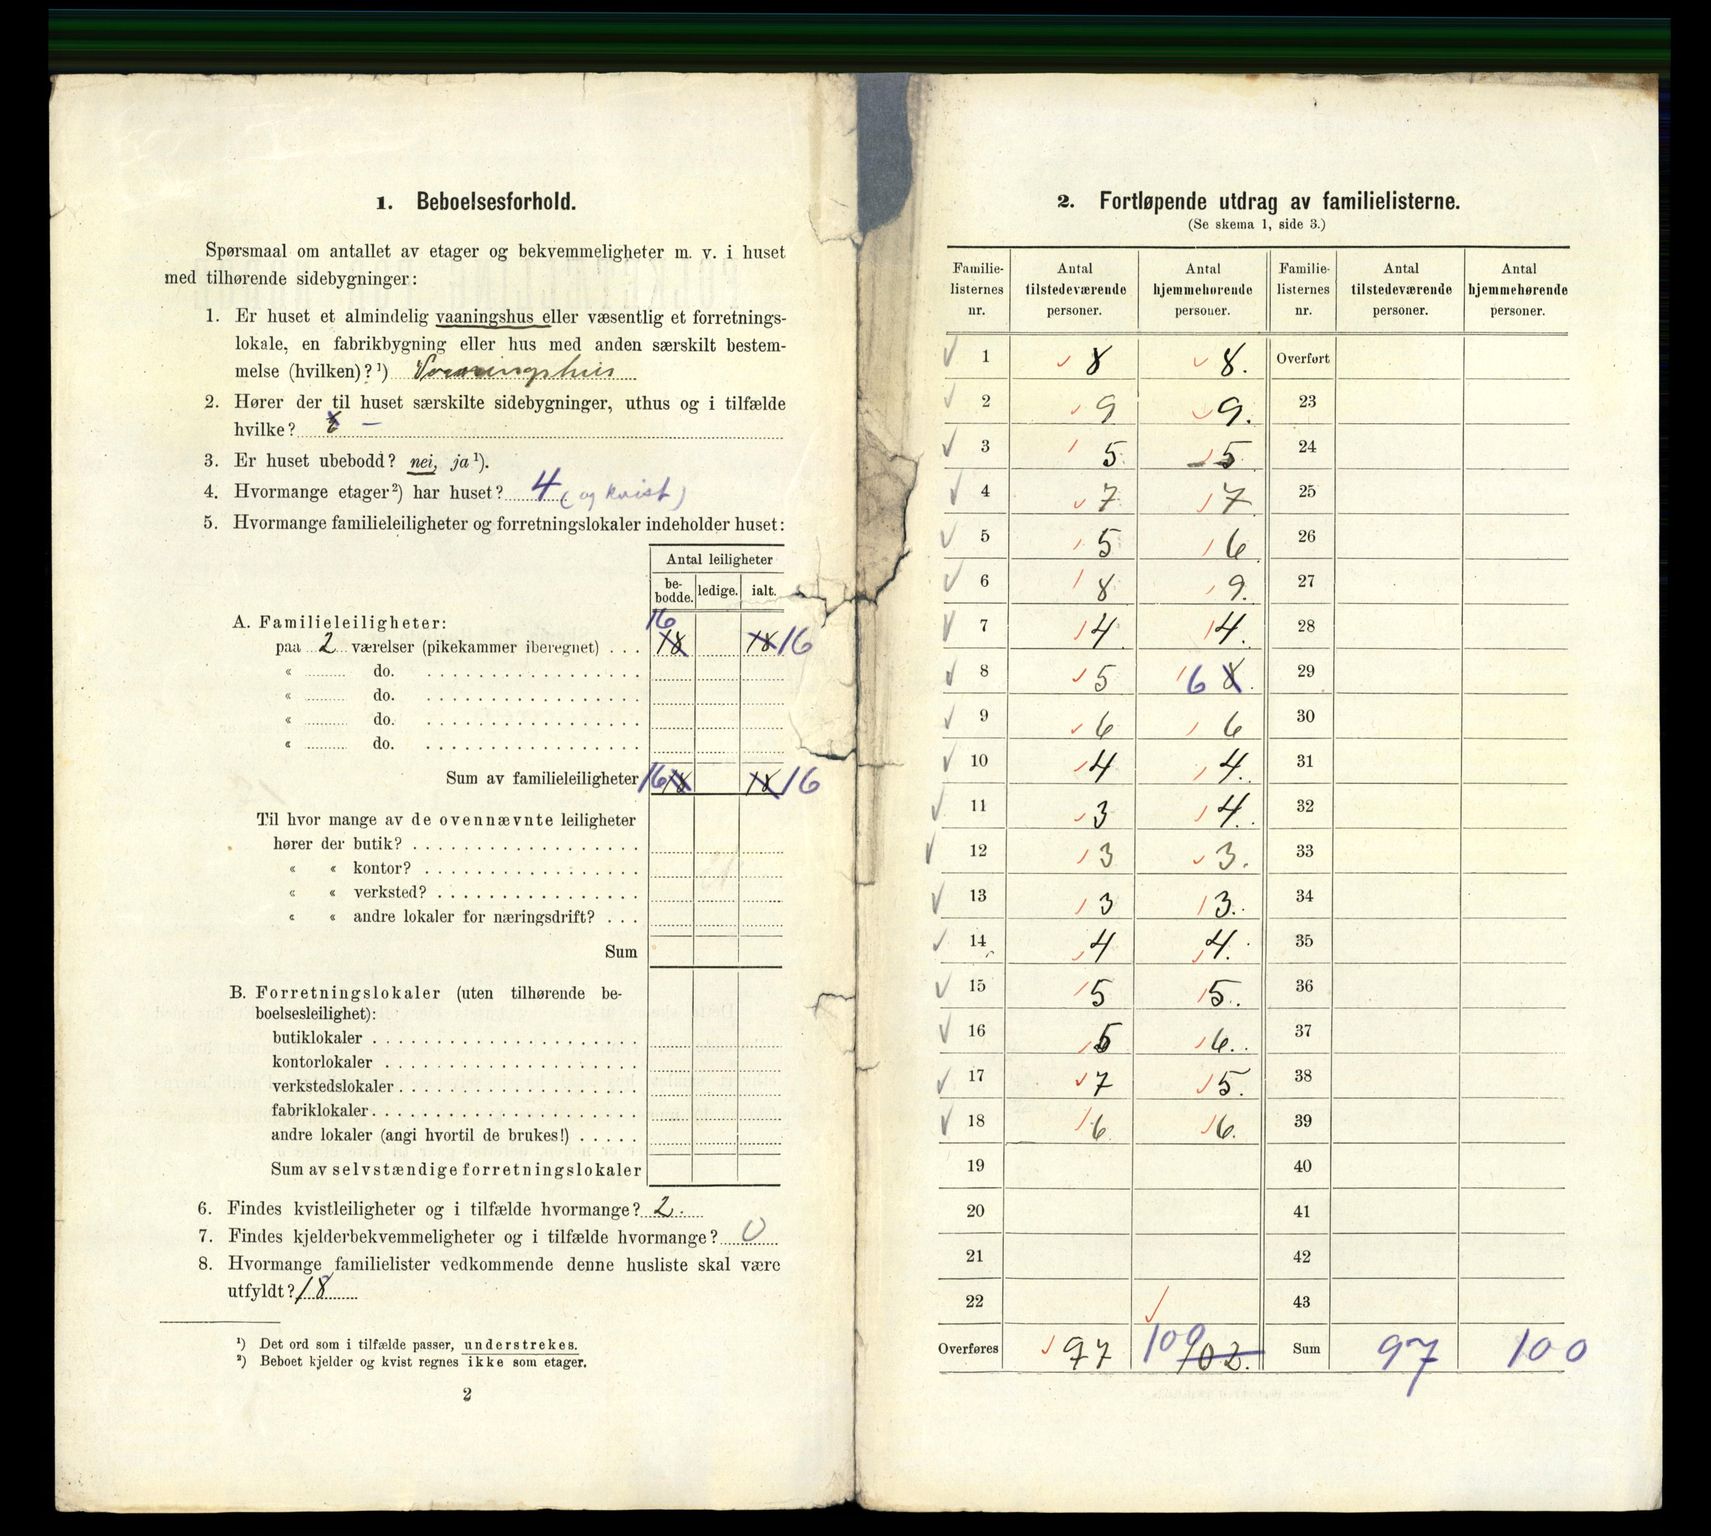 1. Beboelsesforhold.
Spørsmaal om antallet av etager og bekvemmeligheter m. v. i huset
med tilhørende sidebygninger:
1. Er huset et almindelig vaaningshus eller væsentlig et forretnings-
lokale, en fabrikbygning eller hus med anden særskilt bestem-
melse (hvilken)?¹) Vaaningshus
2. Hører der til huset særskilte sidebygninger, uthus og i tilfælde
hvilke? —
3. Er huset ubebodd? nei, ja¹).
4. Hvormange etager²) har huset? 4 (og kvist)
5. Hvormange familieleiligheter og forretningslokaler indeholder huset:
Antal leiligheter
be-bodde. ledige. ialt.
A. Familieleiligheter: 16
paa 2 værelser (pikekammer iberegnet) . . . 18 18 16
« do.
« do.
« do.
« do.
Sum av familieleiligheter 16 18 18 16
Til hvor mange av de ovennævnte leiligheter
hører der butik?
« « kontor?
« « verksted?
« « andre lokaler for næringsdrift? . . .
Sum
B. Forretningslokaler (uten tilhørende be-
boelsesleilighet):
butiklokaler
kontorlokaler
verkstedslokaler
fabriklokaler
andre lokaler (angi hvortil de brukes!)
Sum av selvstændige forretningslokaler
6. Findes kvistleiligheter og i tilfælde hvormange? 2.
7. Findes kjelderbekvemmeligheter og i tilfælde hvormange? 0
8. Hvormange familielister vedkommende denne husliste skal være
utfyldt? 18
¹) Det ord som i tilfælde passer, understrekes.
²) Beboet kjelder og kvist regnes ikke som etager.
2
2. Fortløpende utdrag av familielisterne.
(Se skema 1, side 3.)
Familie-listernes nr. Antal tilstedeværende personer. Antal hjemmehørende personer. Familie-listernes nr. Antal tilstedeværende personer. Antal hjemmehørende personer.
1 8 8. Overført
2 9 9. 23
3 5. 5 24
4 7 7 25
5 5 6 26
6 8 9. 27
7 4 4. 28
8 5 6 8. 29
9 6 6 30
10 4 4. 31
11 3 4. 32
12 3 3. 33
13 3 3. 34
14 4 4. 35
15 5 5. 36
16 5 6. 37
17 7 5. 38
18 6 6. 39
19 40
20 41
21 42
22 43
Overføres 97 100 102. Sum 97 100